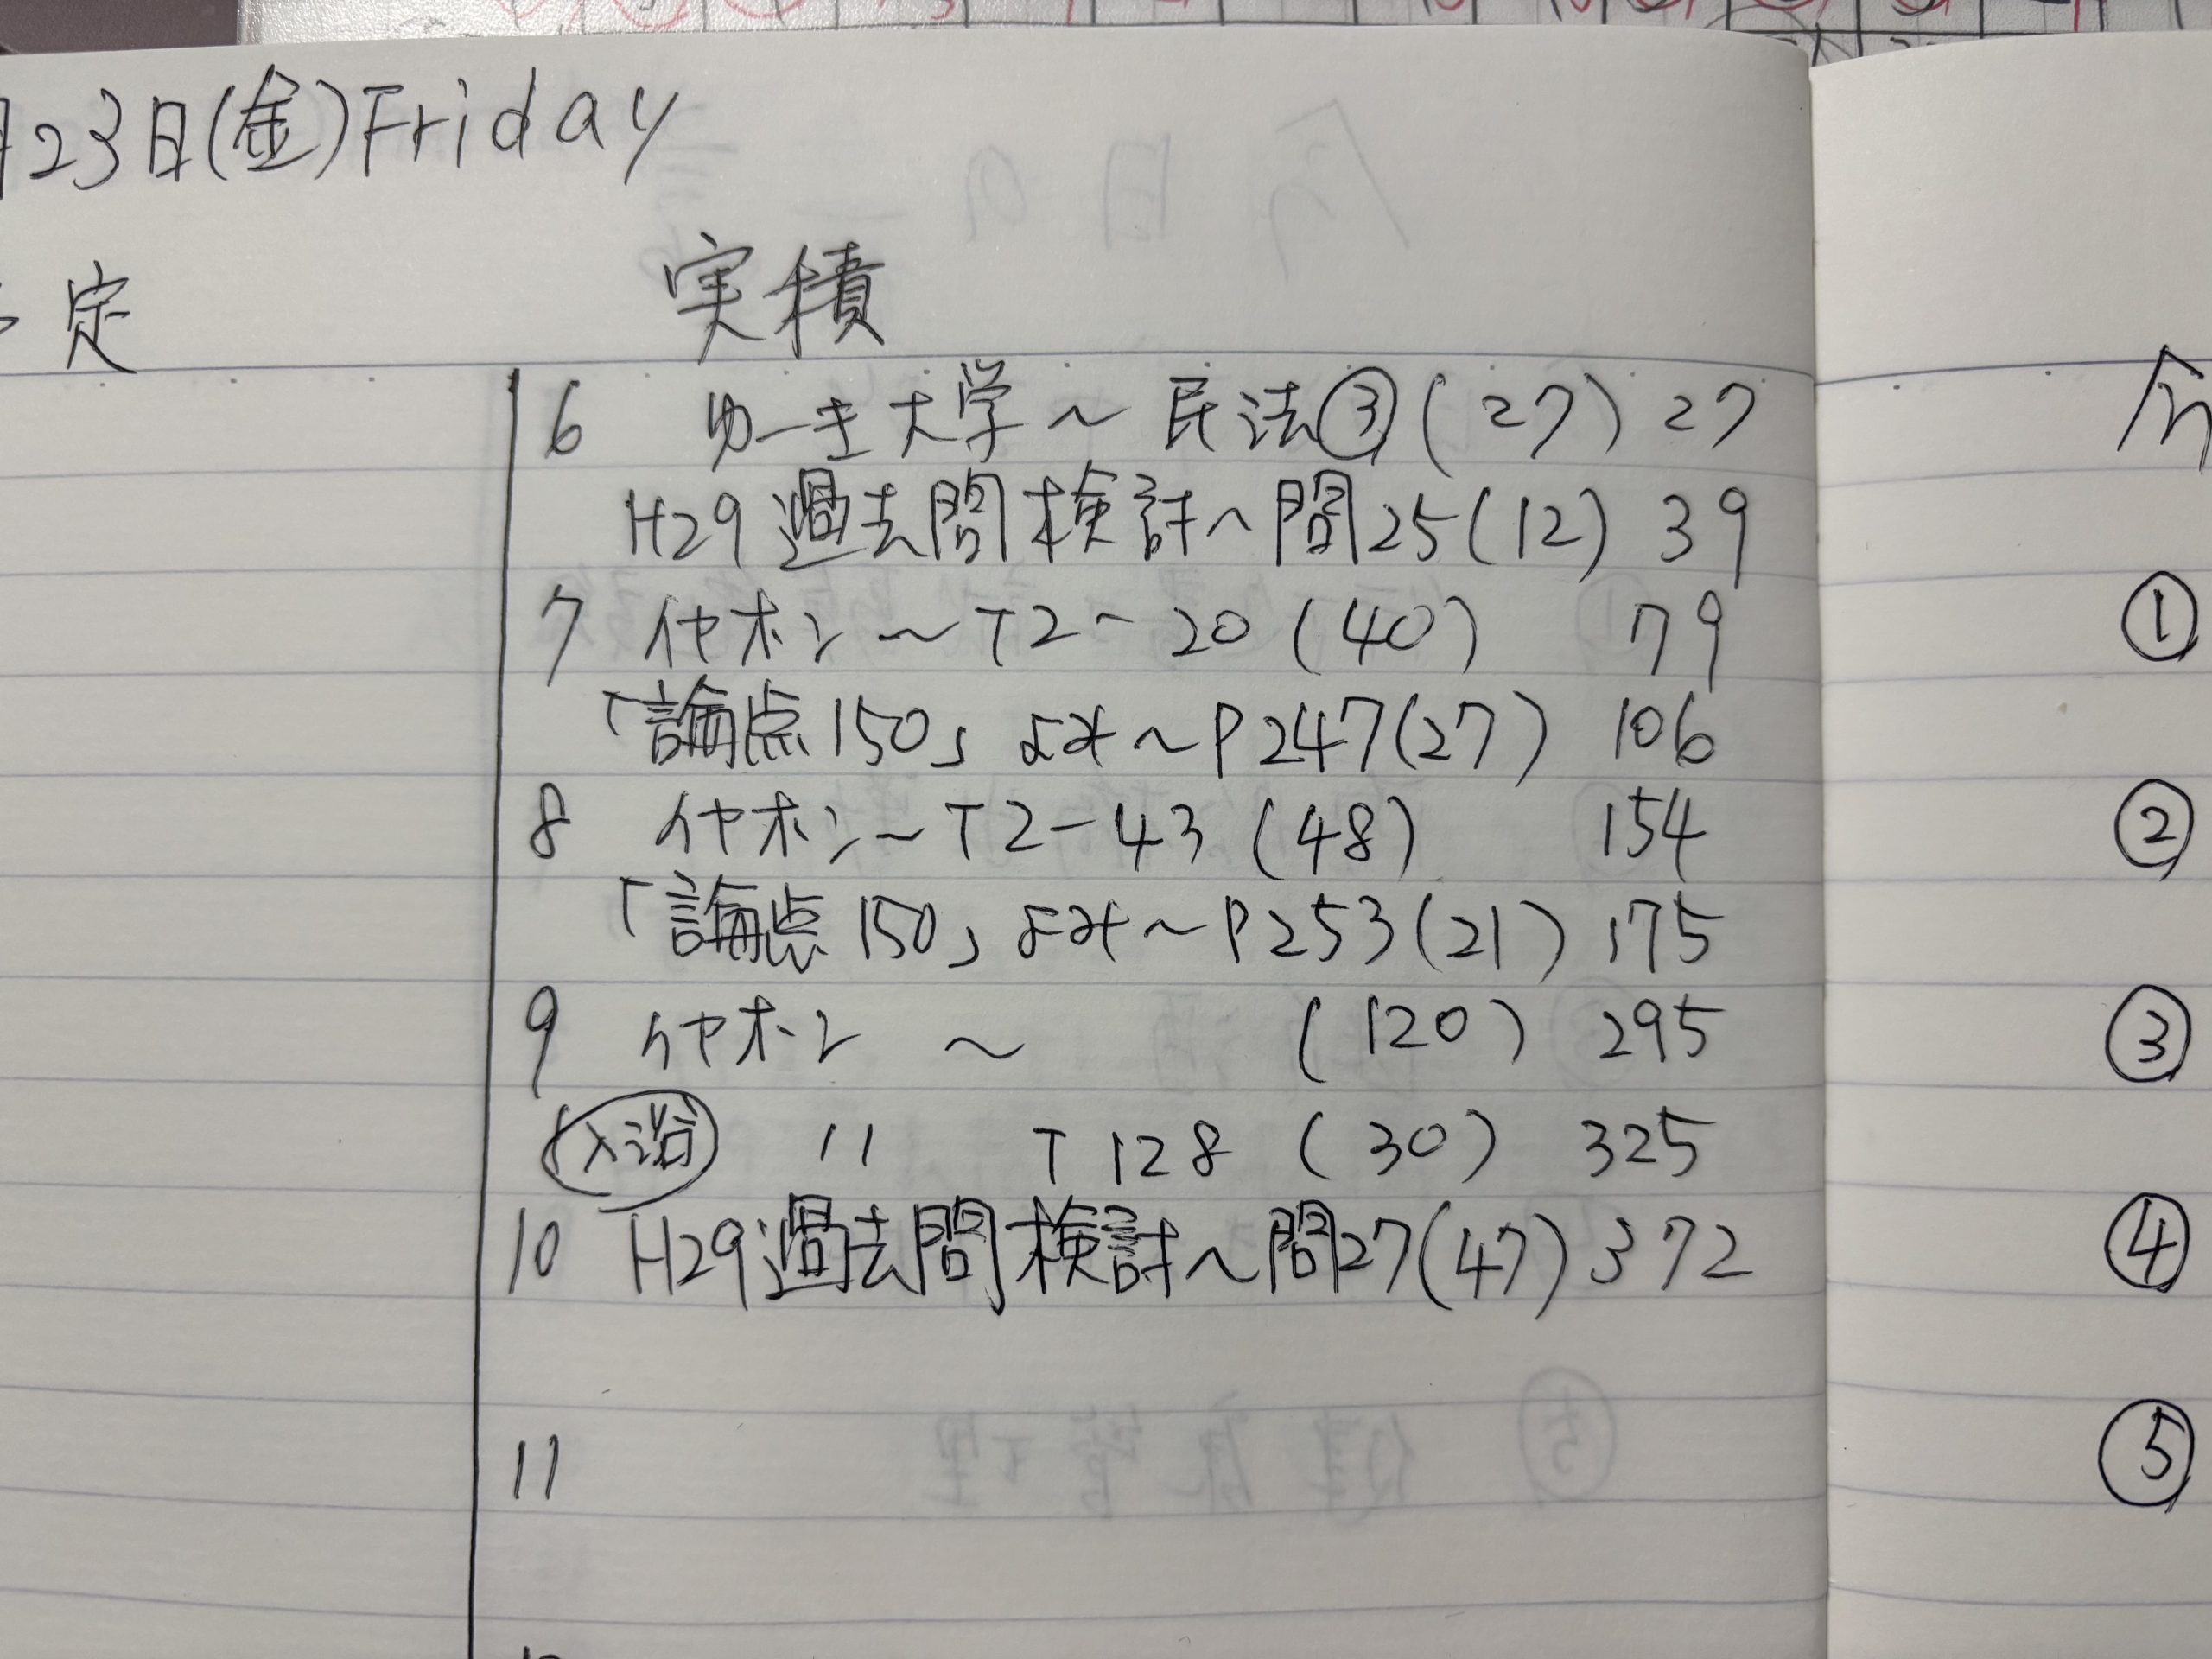 月23日(金)Friday
定 実積
6 ゆーき大学〜民法③(27) 27
H29過去問検討〜問25(12) 39
7 イヤホン〜T2-20(40) 79
「論点150」よみ〜P247(27) 106
8 イヤホン〜T2-43(48) 154
「論点150」よみ〜P253(21) 175
9 イヤホン 〜 (120) 295
入浴 〃 T128 (30) 325
10 H29過去問検討〜問27(47) 372
11
今
①
②
③
④
⑤